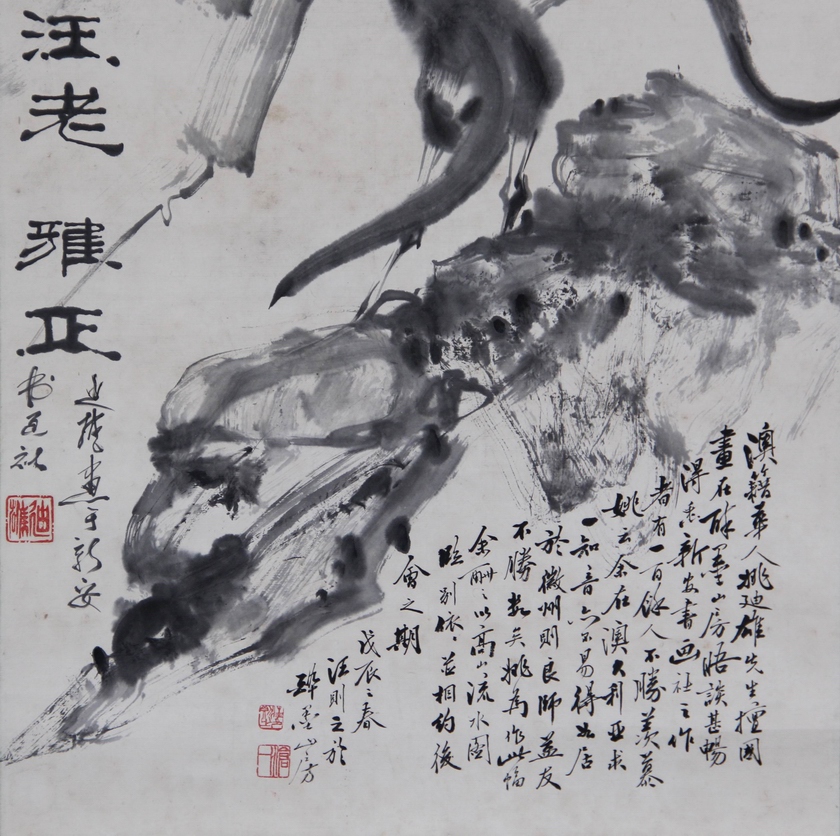 澳籍華人姚廸雄先生擅國
畫在醉墨山房晤談甚暢
得悉新安書画社之作
者有一百餘人不勝羨慕
姚云余在澳大利亚求
一知音亦不易得如居
於徽州則良師益友
不勝数矣姚為作此幅
余酬之以高山流水圖
臨别依々并相约後
會之期
戊辰之春
汪則之於
醉墨山房
汪老雅正
廸雄畫于新安
书画社
廸雄